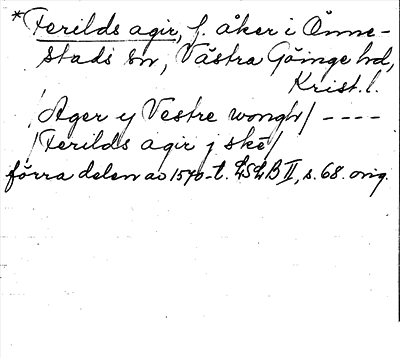 *Ferilds agir, f. åker i Önne-
stads sn, Västra Göinge hd,
Krist. l.
/Ager y Vestre wongh/ ----
/Ferilds agir j skē/
förra delen av 1540-t. LSLB II, s. 68. orig.